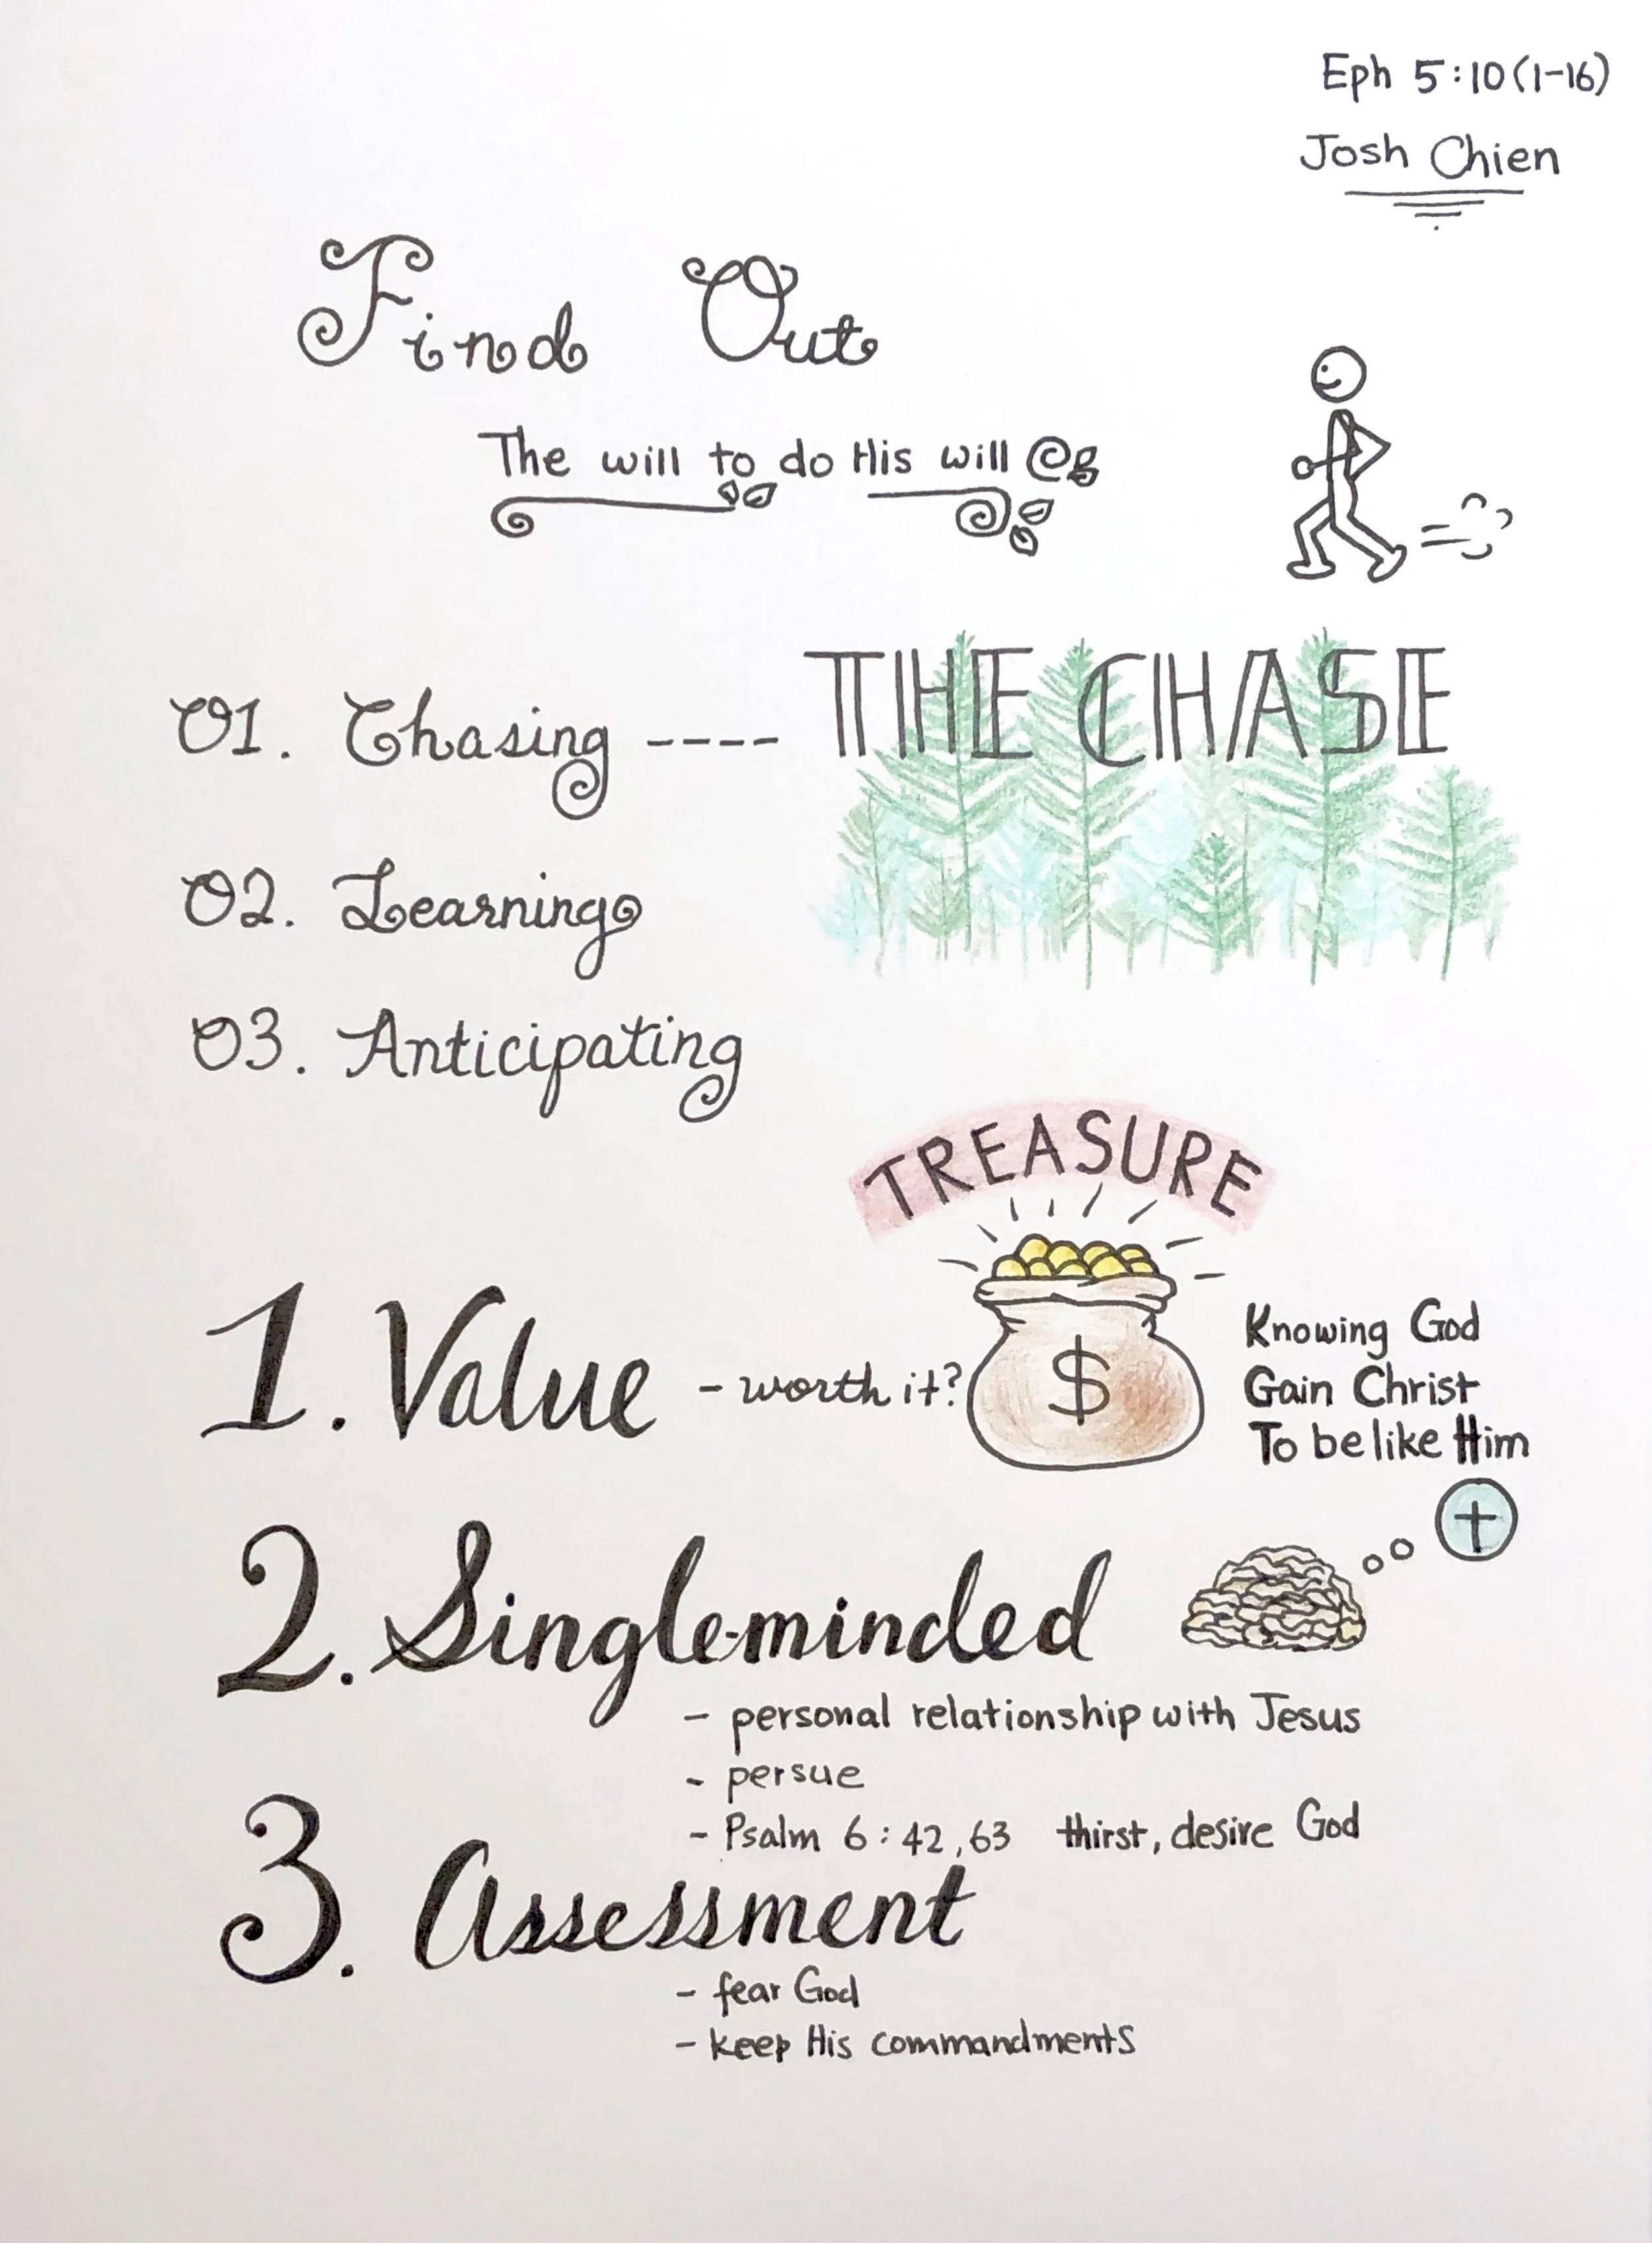 Eph 5:10 (1-16)
Josh Chien
Find Out
The will to do His will
01. Chasing ---- THE CHASE
02. Learning
03. Anticipating
TREASURE
1. Value - worth it?
$
Knowing God
Gain Christ
To be like Him
2. Single-minded
- personal relationship with Jesus
- persue
- Psalm 6:42,63 thirst, desire God
3. Assessment
- fear God
- keep His commandments